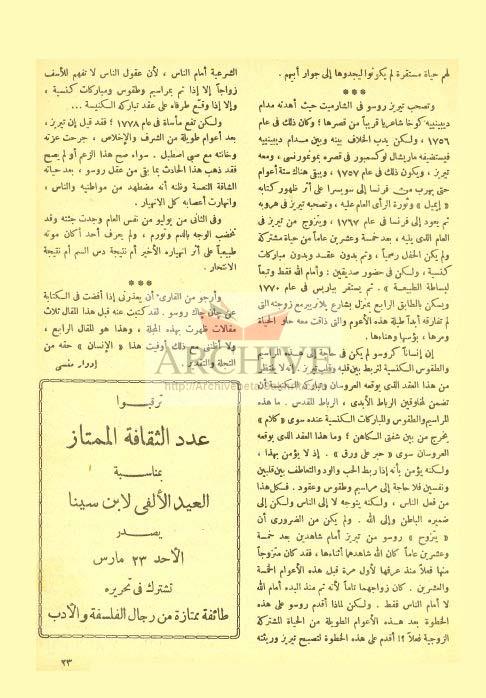 لهم حياة مستقرة لم يكونوا ليجدوها إلى جوار أبيهم .
***
وتصحب تيريز روسو فى الشارميت حيث أهدته مدام
ديبينييه كوخا شاعريا قريباً من قصرها ؛ وكان ذلك فى عام
١٧٥٦ ، ولكن يدب الخلاف بينه وبين مدام ديبينييه
فيستضيفه ماريشال لوكسمبور فى قصره بمونمورنسى ، ومعه
تيريز ، ويكون ذلك فى عام ١٧٥٧ ، ويبقى هناك ستة أعوام
حتى يهرب من فرنسا إلى سويسرا على أثر ظهور كتابه
« إميل » وثورة الرأى العام عليه ، وتصحبه تيريز فى هروبه
ثم يعود إلى فرنسا فى عام ١٧٦٧ ، ويتزوج من تيريز فى
العام الذى يليه ، بعد خمسة وعشرين عاماً من حياة مشتركة
ولم يكن الحفل رسمياً ، وتم بدون عقد وبدون مباركات
كنسية ، ولكن فى حضور صديقين : وأمام الله فقط وتبعاً
لبساطة الطبيعة » . ثم يستقر بباريس فى عام ١٧٧٠
ويسكن بالطابق الرابع بمنزل بشارع پلاتريير مع زوجته التى
لم تفارقه أبداً طيلة هذه الأعوام والتى ذاقت معه حلو الحياة
ومرها ، بؤسها وهناءها .
إن إنساناً كروسو لم يكن فى حاجة إلى هذه المراسيم
والطقوس الكنسية لتربط بين قلبه وقلب تيريز . إنه لا ينتظر
من هذا العقد الذى يوقعه العروسان وتباركه الكنيسة أن
تضمن لمخلوقين الرباط الأبدى ، الرباط المقدس . ما هذه
المراسيم والطقوس والمباركات الكنسية عنده سوى « كلام »
يخرج من بين شفتى الكاهن ؛ وما هذا العقد الذى يوقعه
العروسان سوى « حبر على ورق » . إذ لا يؤمن بهذا ،
ولكنه يؤمن بأنه إذا ربط الحب والود والتعاطف بين قلبين
ونفسين فلا حاجة إلى مراسيم وطقوس وعقود . فكل هذا
من فعل الناس ، ولكنه يتوجه لا إلى الناس ولكن إلى
ضميره الباطن وإلى الله . ولم يكن من الضرورى أن
« يتزوج » روسو من تيريز أمام شاهدين بعد خمسة
وعشرين عاماً كان الله شاهدهما أثناءها ، فقد كان متزوجاً
منها فعلاً منذ عرفها لأول مرة قبل هذه الأعوام الخمسة
والعشرين . كان زواجهما تاماً لأنه تم منذ البدء أمام الله
لا أمام الناس فقط . ولكن لماذا أقدم روسو على هذه
الخطوة بعد هذه الأعوام الطويلة من الحياة المشتركة
الزوجية فعلاً ؟! أقدم على هذه الخطوة لتصبح تيريز وريثته
الشرعية أمام الناس ، لأن عقول الناس لا تفهم للأسف
زواجاً إلا إذا تم بمراسيم وطقوس ومباركات كنسية ،
وإلا إذا وقع طرفاه على عقد تباركه الكنيسة ...
ولكن تقع مأساة فى عام ١٧٧٨ ؛ فقد قيل إن تيريز ،
بعد أعوام طويلة من الشرف والإخلاص ، جرحت عزته
وخانته مع صبى اصطبل . سواء صح هذا الزعم أو لم يصح
فقد ذهب هذا الحادث بما بقى من عقل روسو ، بعد حياته
الشاقة التعسة وظنه أنه مضطهد من مواطنيه والناس ،
وانهارت أعصابه كل الانهيار .
وفى الثانى من يوليو من نفس العام وجدت جثته وقد
تخضب الوجه بالدم وتورم ، ولم يعرف أحد أكان موته
طبيعياً على أثر انهياره الأخير أم نتيجة دس السم أم نتيجة
الانتحار .
***
وأرجو من القارئ أن يعذرنى إذا أفضت فى الكتابة
عن جان جاك روسو . لقد كتبت عنه قبل هذا المقال ثلاث
مقالات ظهرت بهذه المجلة ، وهذا هو المقال الرابع ،
ولا أظننى مع ذلك أوفيت هذا « الإنسان » حقه من
التجلة والتقدير .
إدوار منسى
ARCHIVE
ترقبــوا
عدد الثقافة الممتاز
بمناسبة
العيد الألفى لابن سينا
يصدر
الأحد ٢٣ مارس
تشترك فى تحريره
طائفة ممتازة من رجال الفلسفة والأدب
٢٣